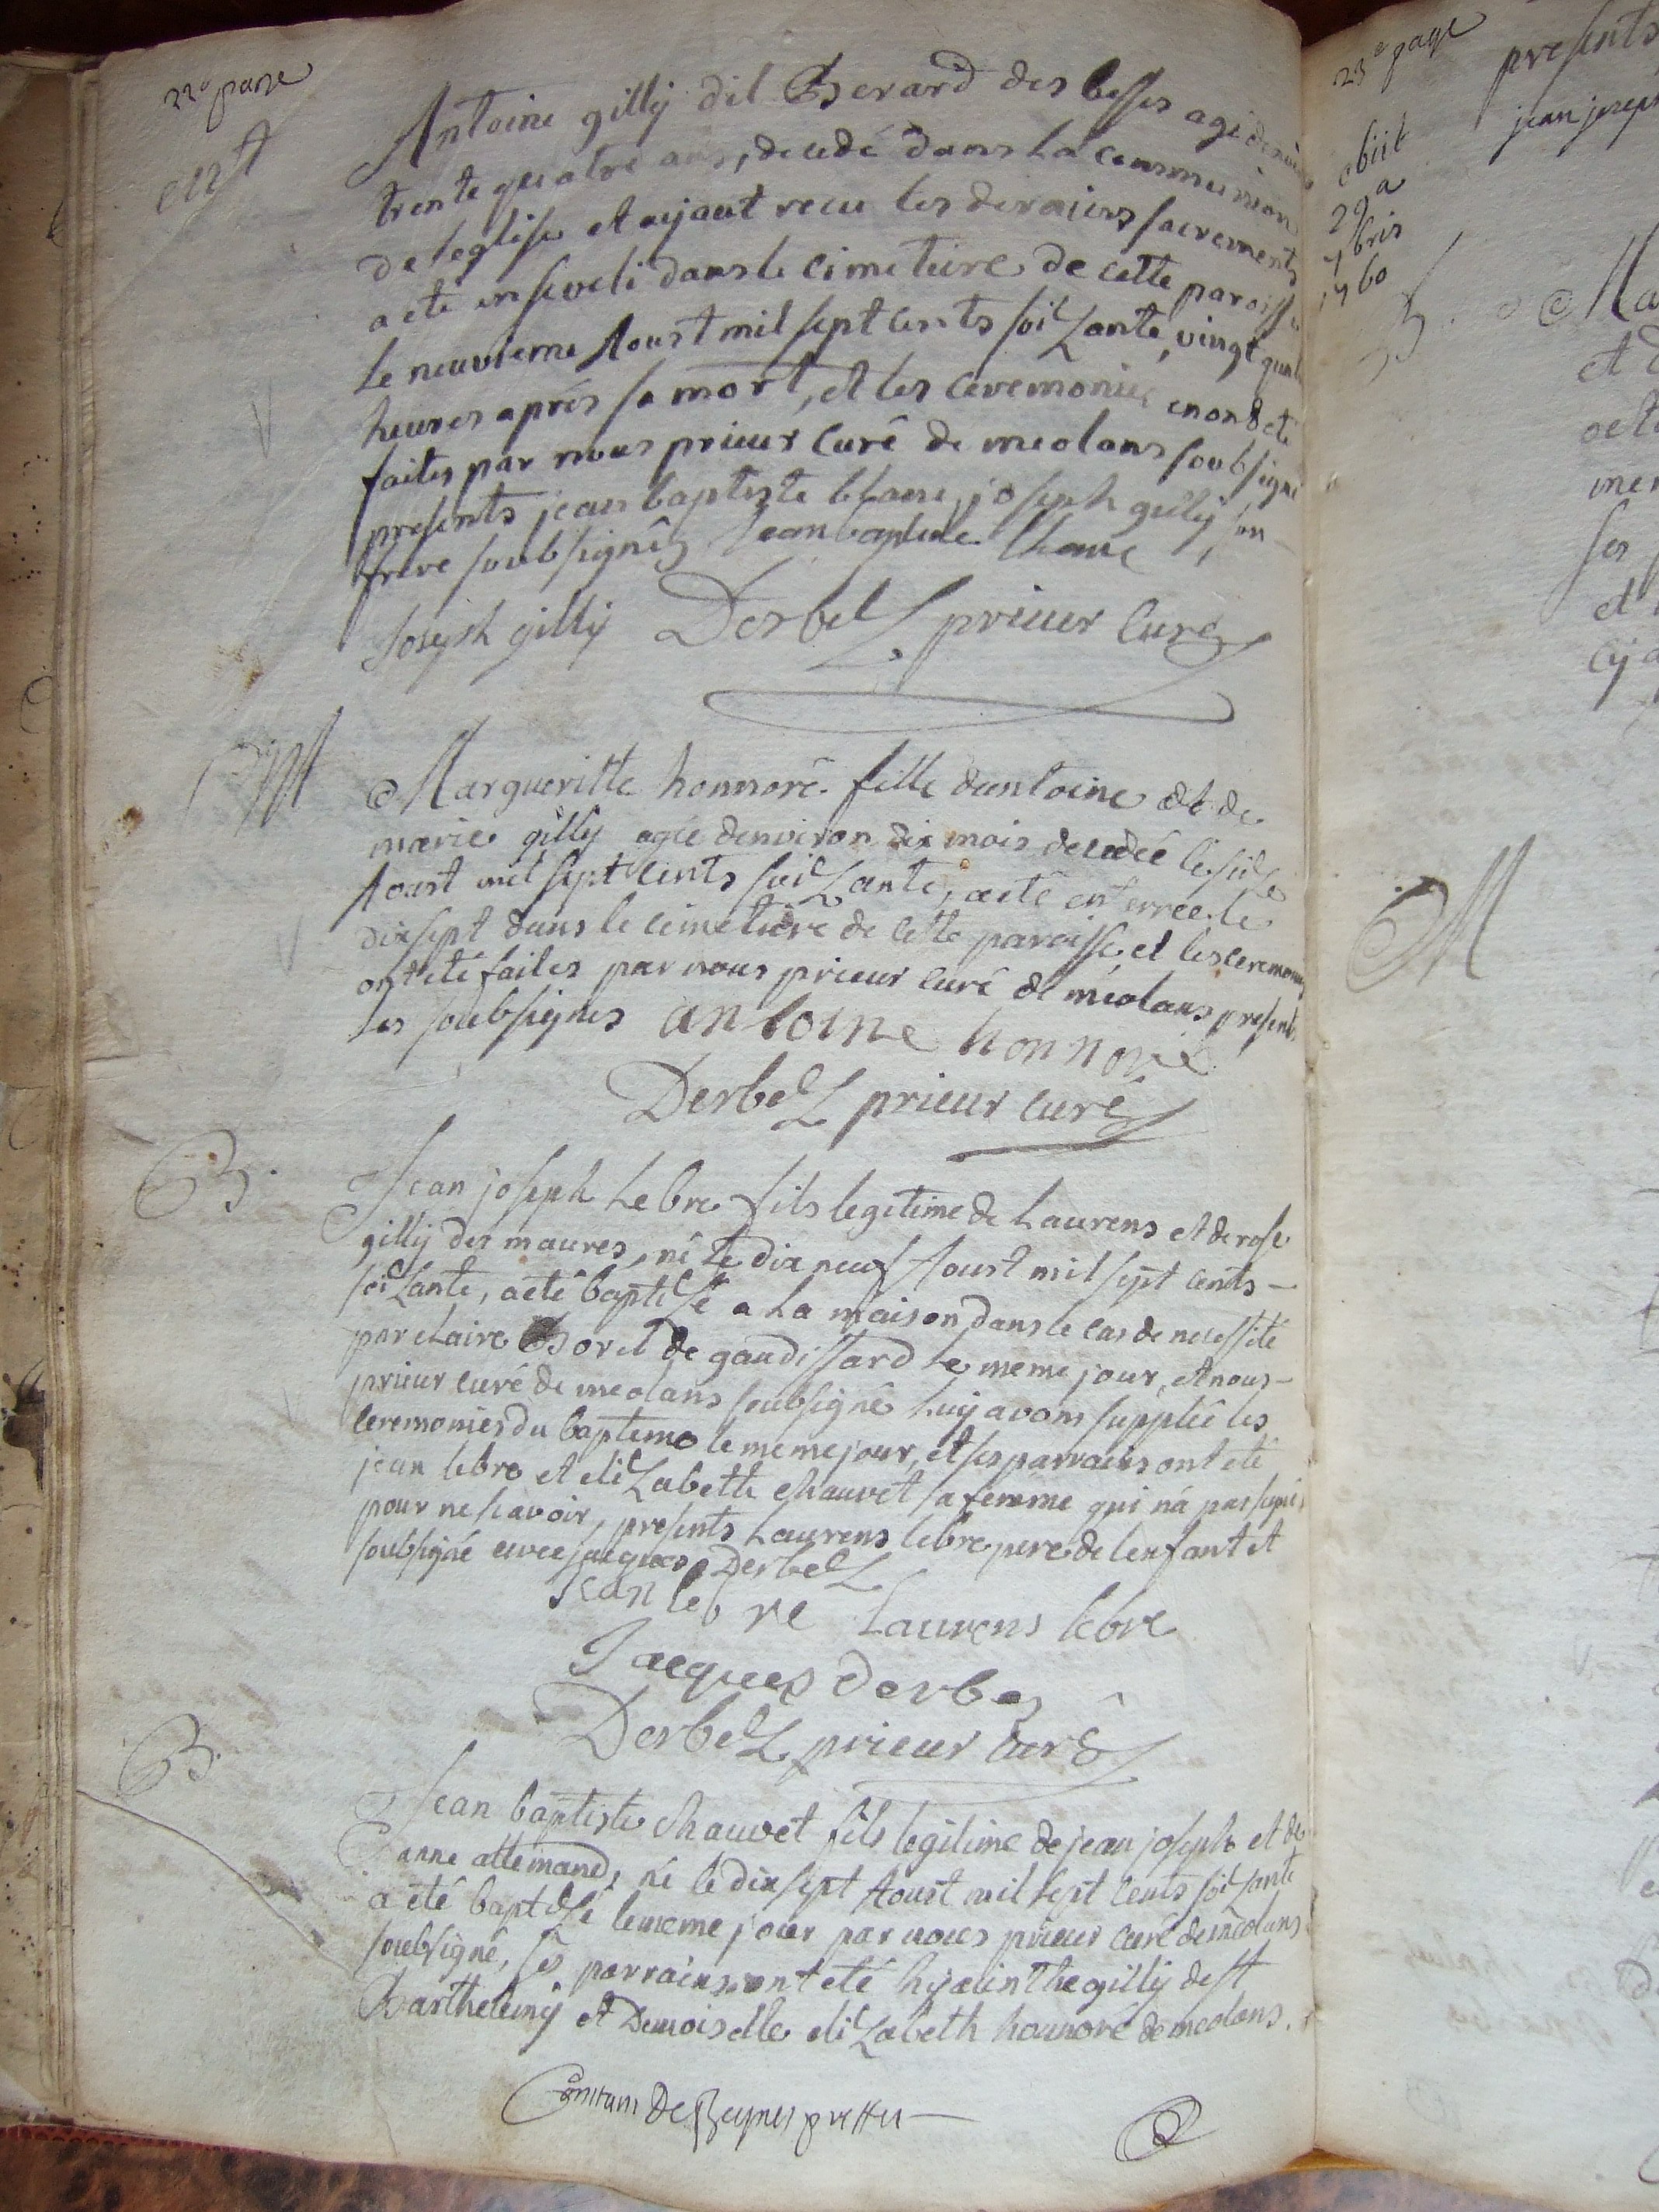 22e page
ent
Antoine gilly dit Berard des besses agé denviron
trente quatre ans, decedé dans la communion
de leglise et ayant recu les derniers sacrements
a eté enseveli dans le cimetiere de cette paroisse
le neuvieme Aoust mil sept cents soiZante, vingt quatre
heures aprés sa mort, et les ceremonies en ont eté
faites par nous prieur Curé de meolans soubsigné
presents jean baptiste blanc, joseph gilly son
frere soubsignés Jean baptiste blanc
Joseph gilly DerbeZ prieur Curé
M
Margueritte honnoré fille dantoine et de
marie gilly agée denviron dix mois decedée le siZe
Aoust mil sept cents soiZante, a eté enterrée le
dix sept dans le cimetiere de cette paroisse et les ceremonies
ont eté faites par nous prieur curé de meolans presents
les soubsignes antoine honnoré
DerbeZ prieur curé
B.
Jean joseph Lebre fils legitime de Laurens et de rose
gilly des maures, né le dix neuf Aoust mil sept cents
soiZante, a eté baptisé a la maison dans le cas de necessité
par claire Borel de gaudissard le meme jour, et nous
prieur curé de meolans soubsigné luy avons supplée les
ceremonies du bapteme le meme jour, et ses parrains ont eté
jean lebre et eliZabeth chauvet sa femme qui na pas signé
pour ne scavoir, presents Laurens lebre pere de lenfant et
soubsigné avec jacques DerbeZ
Jean lebre Laurens lebre
Jacques derbes
DerbeZ prieur curé
B.
Jean baptiste chauvet fils legitime de jean joseph et de
anne allemand, né le dix sept Aoust mil sept cents soiZante
a eté baptisé le meme jour par nous prieur curé de meolans
soubsigné, ses parrains ont eté hyacinthe gilly de st
Barthelemy et Demoiselle eliZabeth honnoré de meolans.
De Beynes
23e page
presents
jean joseph
obiit
29a
7bris
1760
B.
Ma
et
ses
et
M